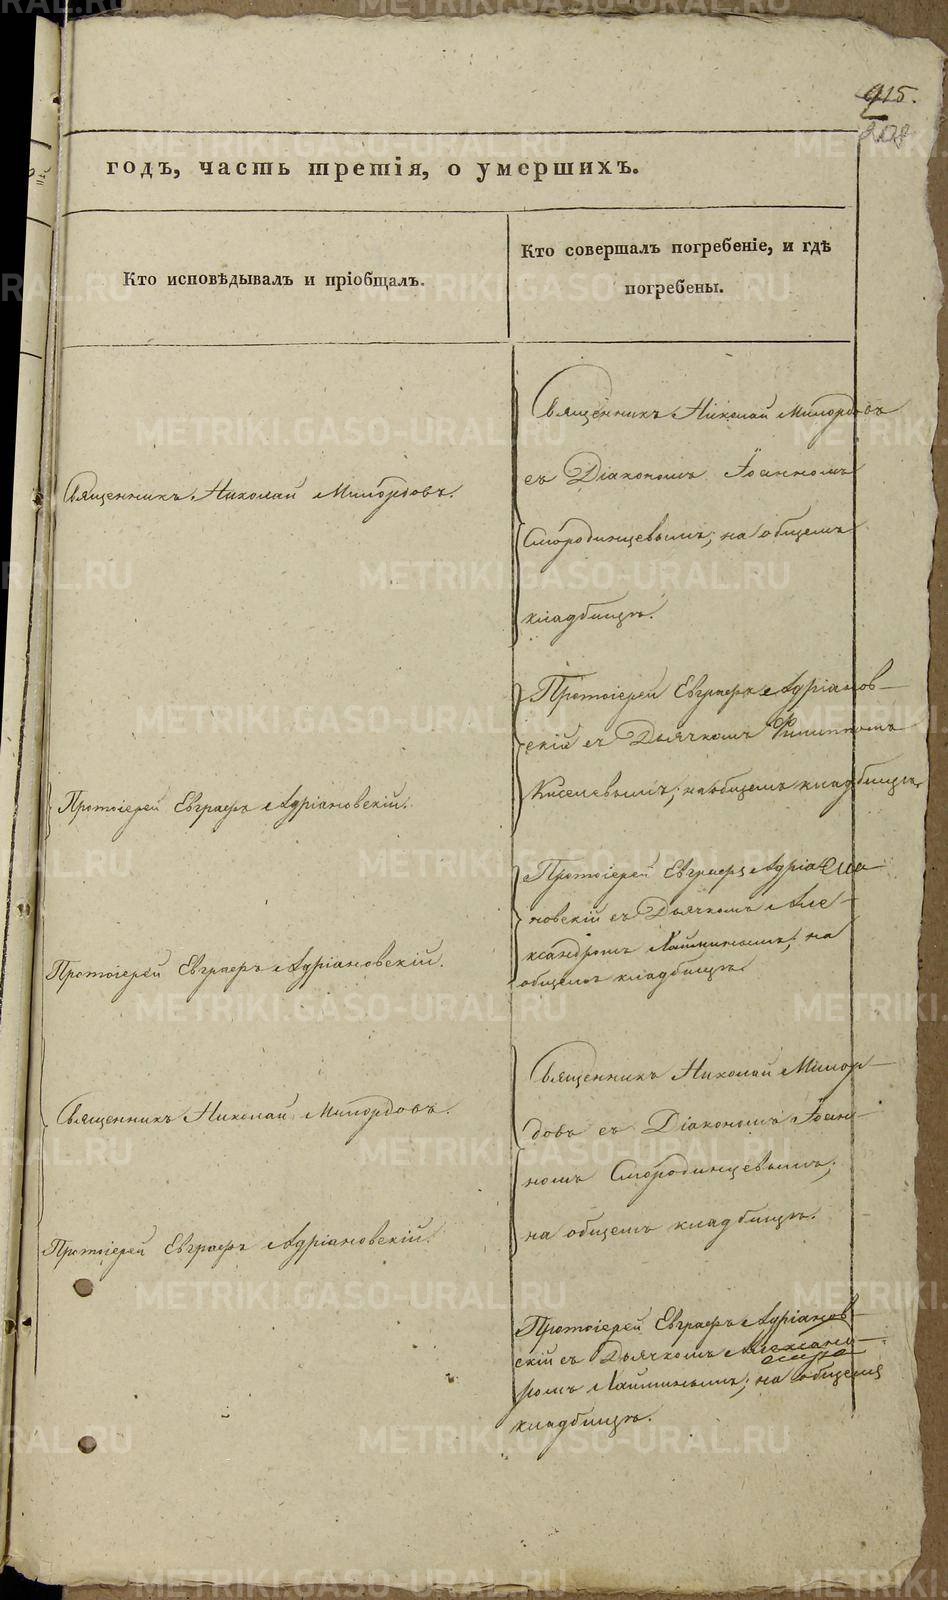 915.
годъ, часть третія, о умершихъ.
Кто исповѣдывалъ и пріобщалъ.
Кто совершалъ погребеніе, и гдѣ
погребены.
Священникъ Николай Милордовъ.
Священникъ Николай Милордовъ
съ Діакономъ Іоанномъ
Смородинцевымъ; на общемъ
кладбищѣ.
Протоіерей Евграфъ Адріановскій.
Протоіерей Евграфъ Адріанов-
скій съ Дьячкомъ Филиппомъ
Киселевымъ; на общемъ кладбищѣ.
Протоіерей Евграфъ Адріановскій.
Протоіерей Евграфъ Адріа
новскій съ Дьячкомъ Але-
ксандромъ Лапинымъ; на
общемъ кладбищѣ.
Священникъ Николай Милордовъ.
Священникъ Николай Милор-
довъ съ Діакономъ Іоан-
номъ Смородинцевымъ;
на общемъ кладбищѣ.
Протоіерей Евграфъ Адріановскій.
Протоіерей Евграфъ Адріанов-
скій съ Дьячкомъ Александ-
ромъ Лапинымъ; на общемъ
кладбищѣ.
METRIKI.GASO-URAL.RU